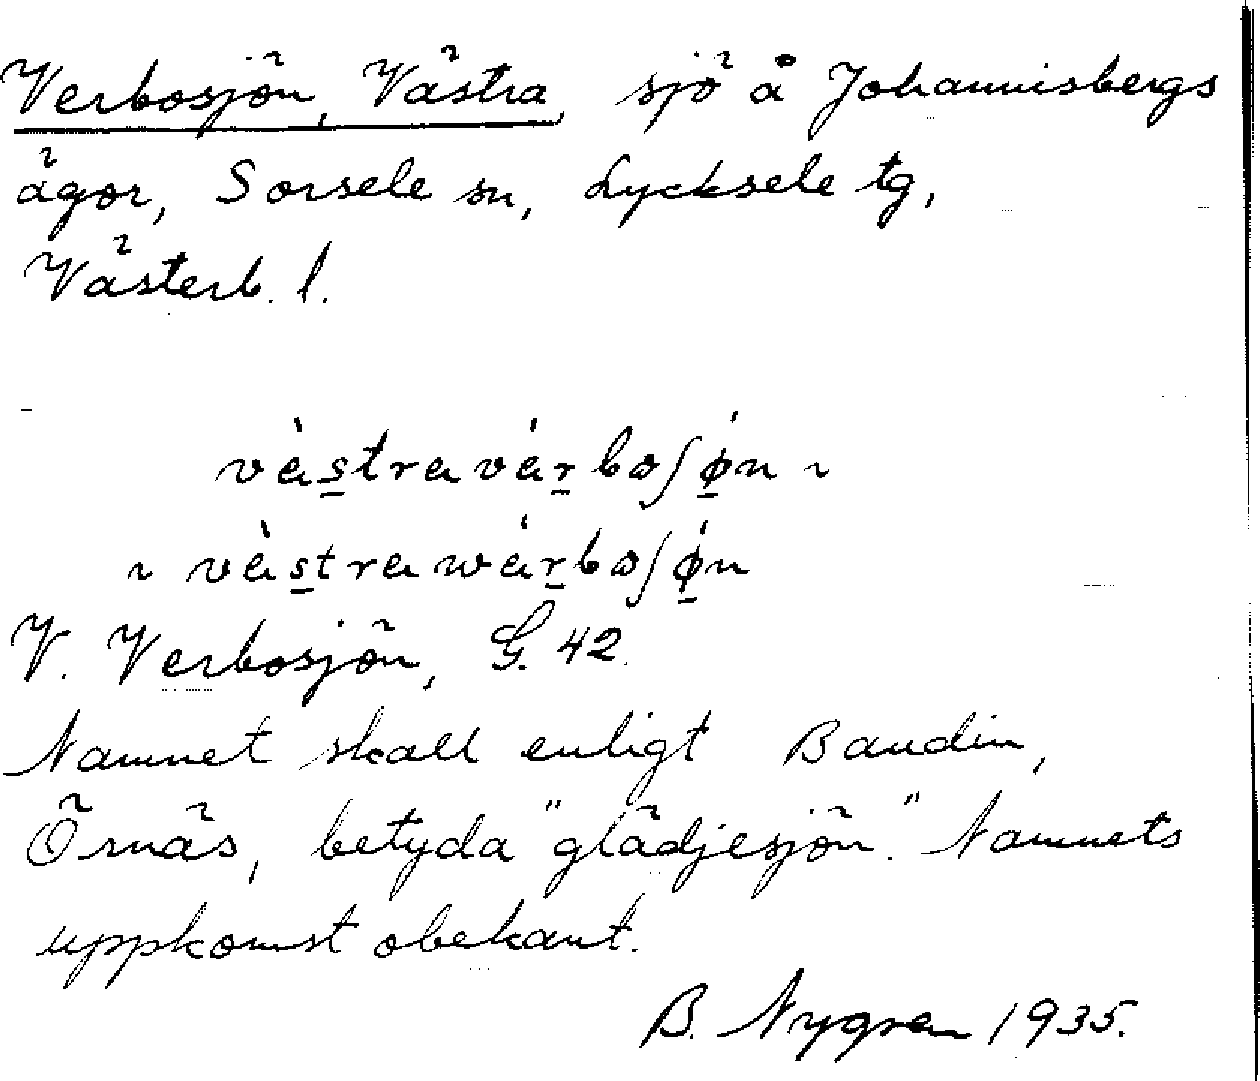 Verbosjön, Västra, sjö å Johannisbergs
ägor, Sorsele sn, Lycksele tg,
Västerb. l.
vàs̱travár̠boʃǿ̱n ~
~ vàs̱trawár̠boʃǿ̱n
V. Verbosjön, G. 42.
Namnet skall enligt Baudin,
Örnäs, betyda "glädjesjön." Namnets
uppkomst obekant.
B. Nygren 1935.